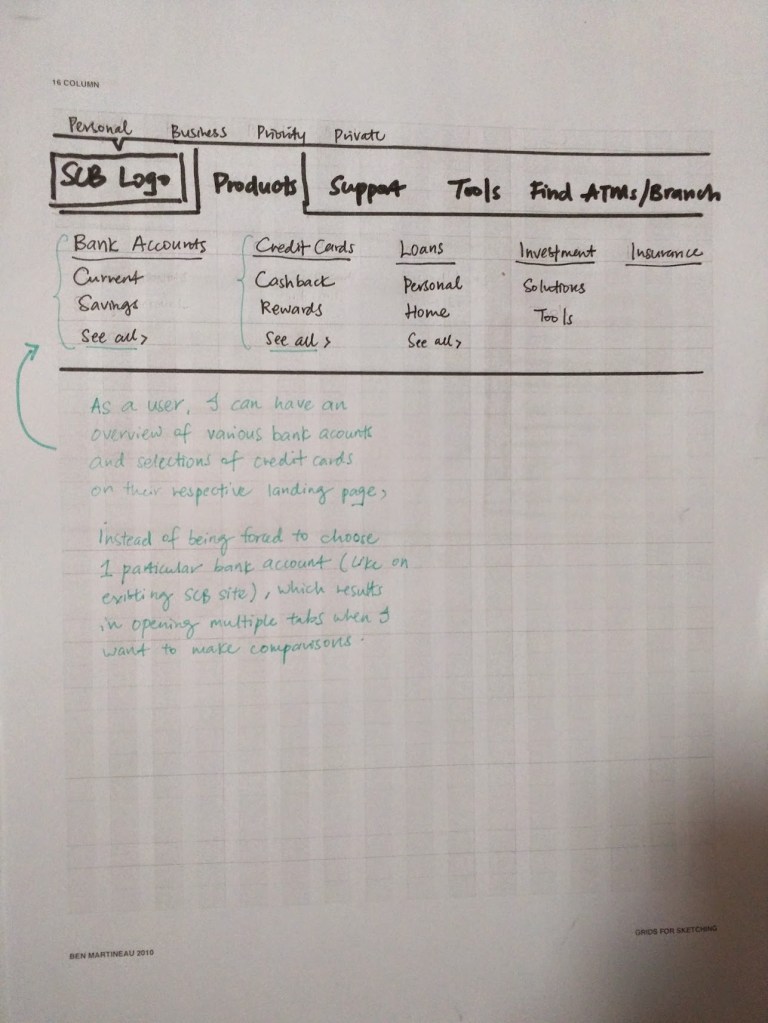 16 COLUMN
Personal Business Priority Private
SCB Logo Products Support Tools Find ATMs/Branch
Bank Accounts Credit Cards Loans Investment Insurance
Current Cashback Personal Solutions
Savings Rewards Home Tools
See all > See all > See all >
As a user, I can have an
overview of various bank acounts
and selections of credit cards
on their respective landing page,
Instead of being forced to choose
1 particular bank account (like on
existing SCB site), which results
in opening multiple tabs when I
want to make comparisons.
GRIDS FOR SKETCHING
BEN MARTINEAU 2010